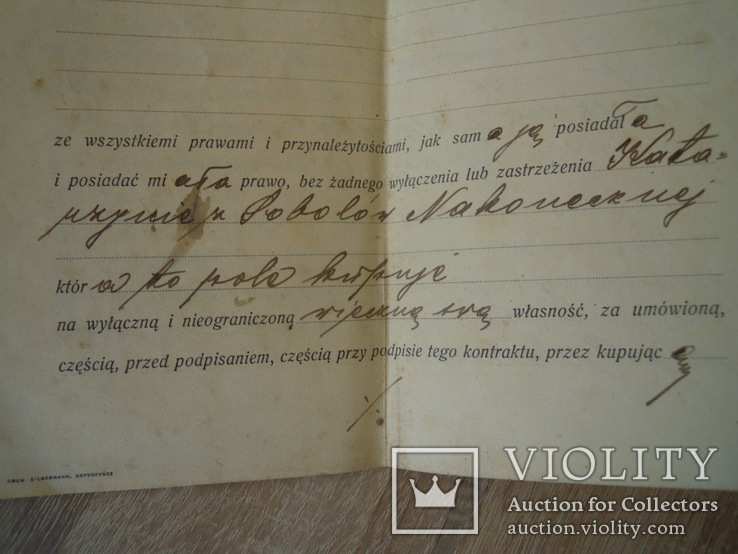 ze wszystkiemi prawami i przynależytościami, jak sam a ją posiadał a
i posiadać mi ała prawo, bez żadnego wyłączenia lub zastrzeżenia Kata-
rzynie z Sobolów Nakonecznej
któr a to pole kupuje
na wyłączną i nieograniczoną wieczną swą własność, za umówioną,
częścią, przed podpisaniem, częścią przy podpisie tego kontraktu, przez kupując
./.
DRUK. SILBERMANN, KOPYCZYŃCE
VIOLITY
Auction for Collectors
auction.violity.com